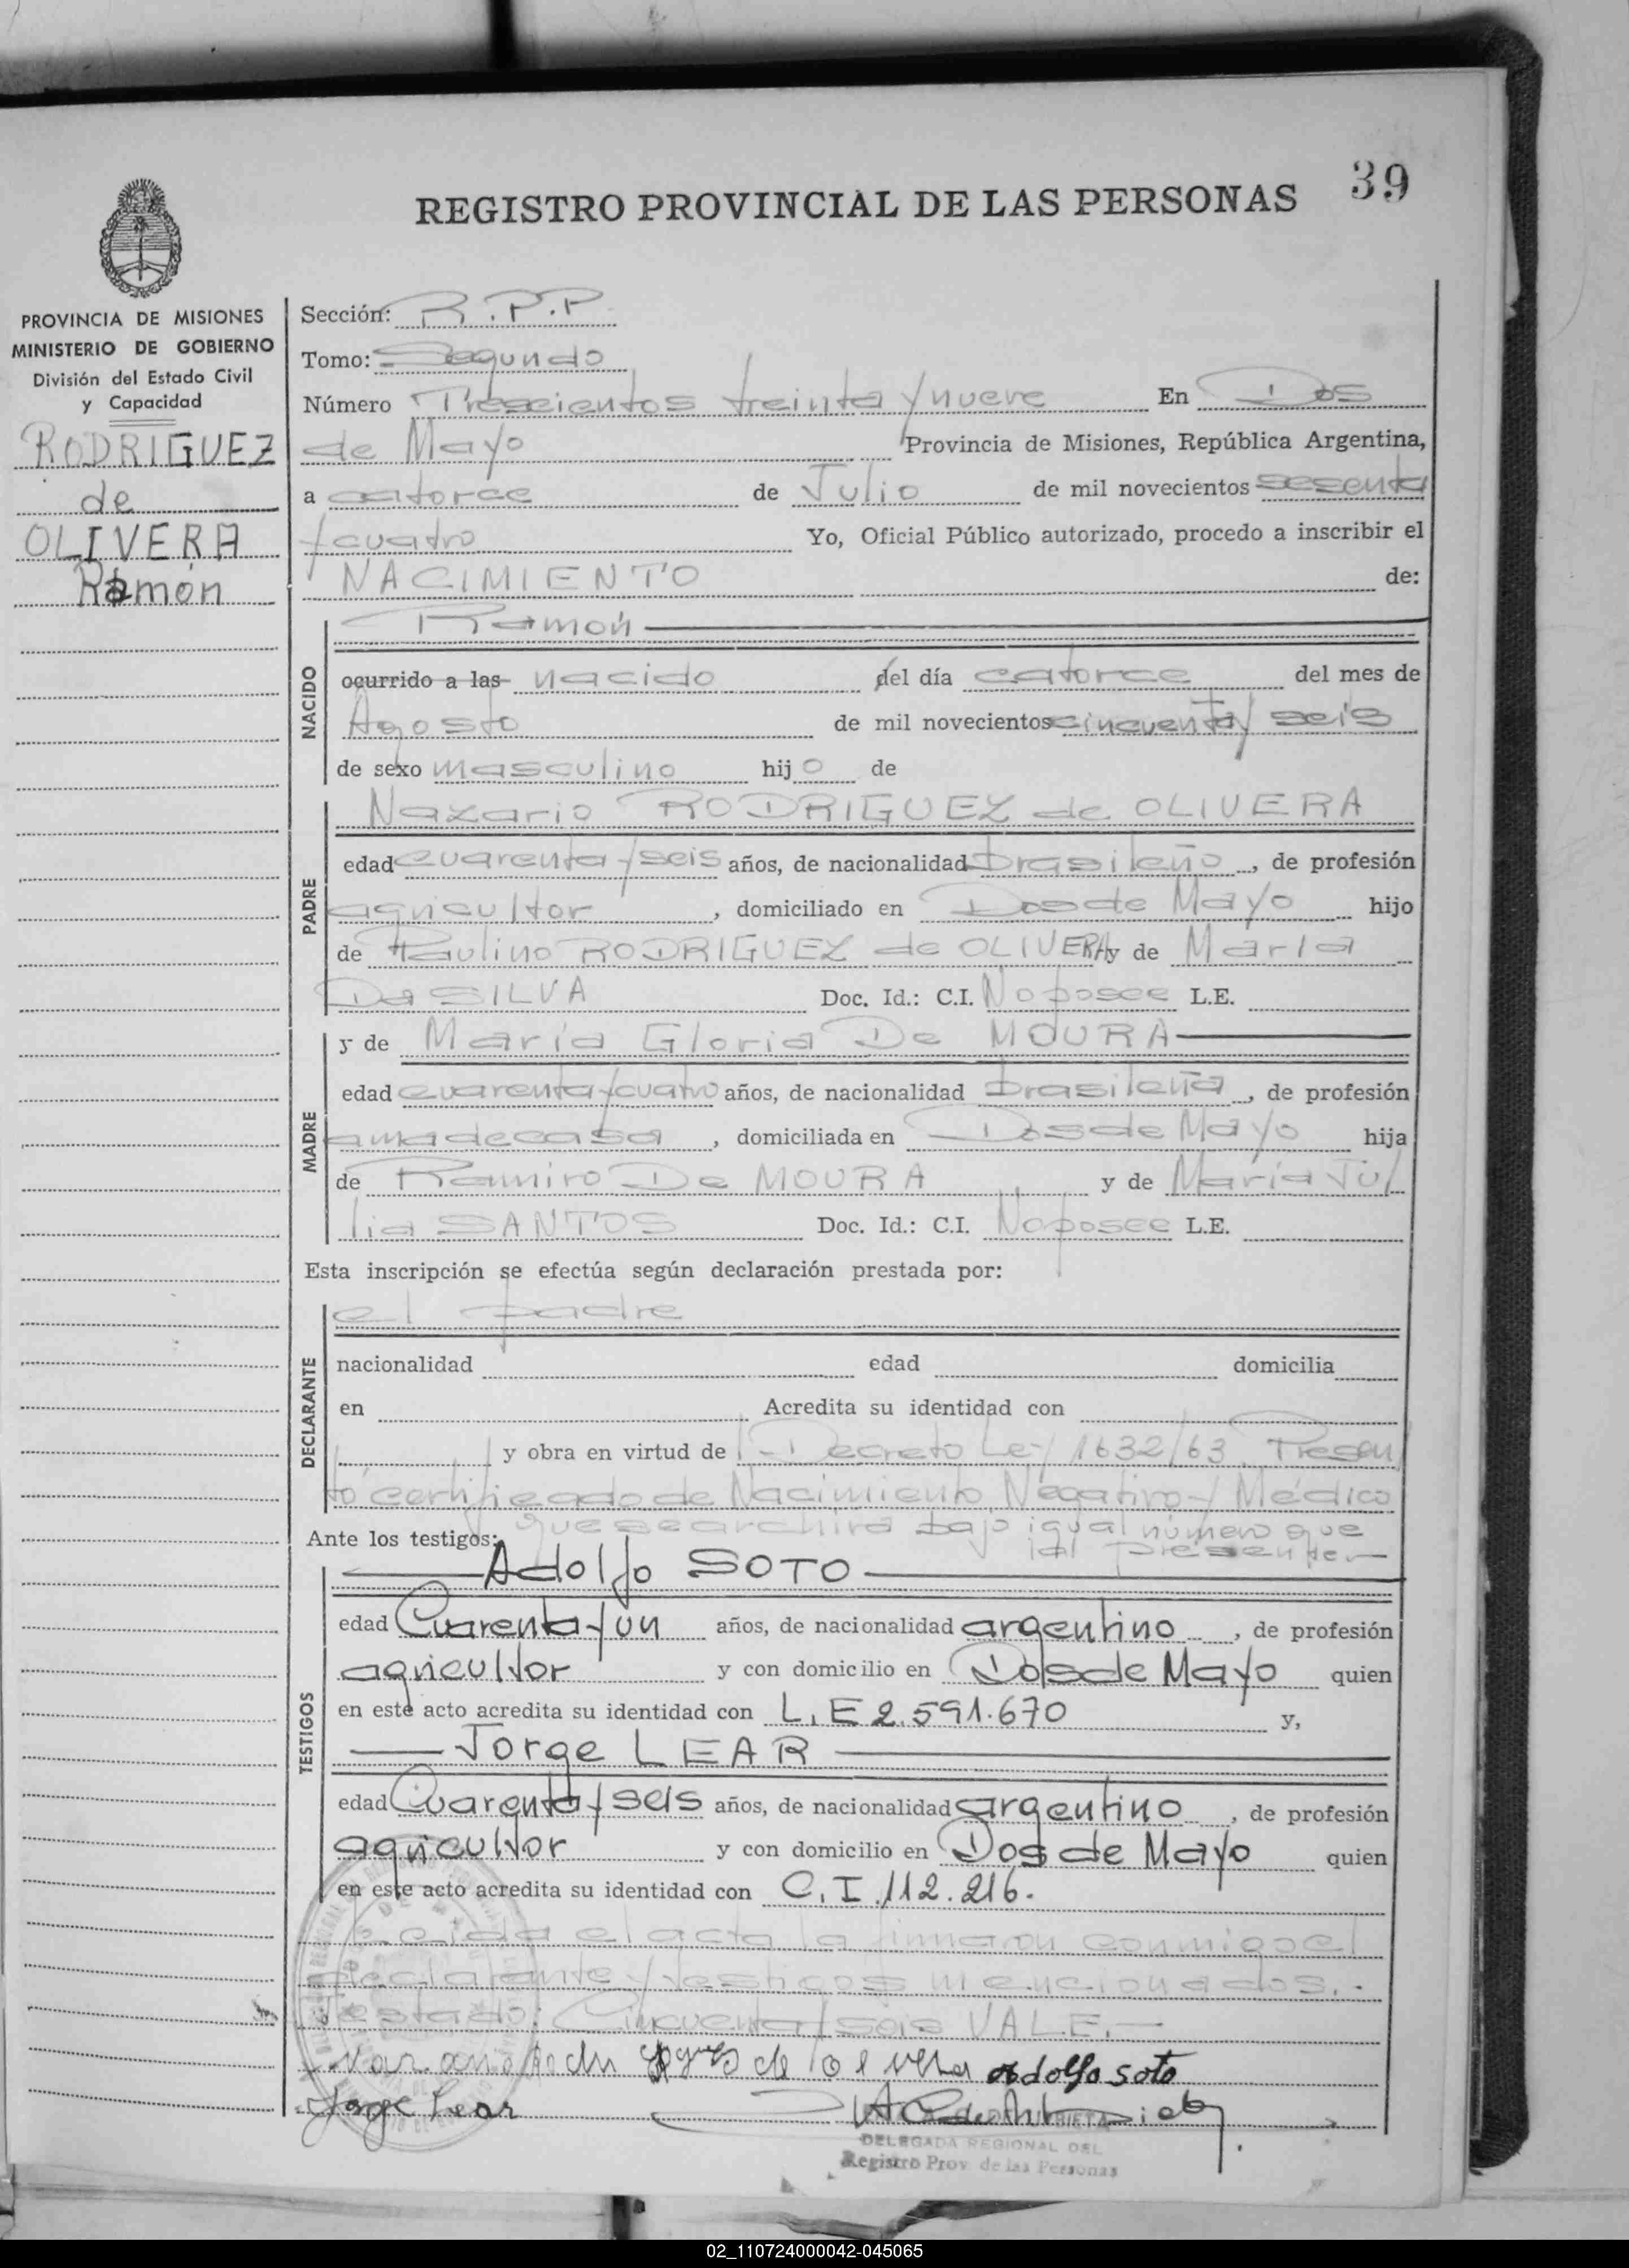 39
REGISTRO PROVINCIAL DE LAS PERSONAS
PROVINCIA DE MISIONES
MINISTERIO DE GOBIERNO
División del Estado Civil
y Capacidad
RODRIGUEZ
de
OLIVERA
Ramón
Sección: R.P.P
Tomo: Segundo
Número Trescientos treinta y nueve En Dos
de Mayo Provincia de Misiones, República Argentina,
a catorce de Julio de mil novecientos sesenta
y cuatro Yo, Oficial Público autorizado, procedo a inscribir el
NACIMIENTO de:
NACIDO
Ramón
ocurrido a las nacido del día catorce del mes de
Agosto de mil novecientos cincuenta y seis
de sexo masculino hijo de
PADRE
Nazario RODRIGUEZ de OLIVERA
edad cuarenta y seis años, de nacionalidad brasileño, de profesión
agricultor, domiciliado en Dos de Mayo hijo
de Paulino RODRIGUEZ de OLIVERA y de María
Da SILVA Doc. Id.: C.I. No posee L.E.
MADRE
y de María Gloria De MOURA
edad cuarenta y cuatro años, de nacionalidad brasileña, de profesión
ama de casa, domiciliada en Dos de Mayo hija
de Ramiro De MOURA y de María Jul
lia SANTOS Doc. Id.: C.I. No posee L.E.
Esta inscripción se efectúa según declaración prestada por:
DECLARANTE
el padre
nacionalidad edad domicilia
en Acredita su identidad con
y obra en virtud de Decreto Ley 1632/63 Presen
tó certificado de Nacimiento Negativo y Médico
que se archiva bajo igual número que
Ante los testigos:
TESTIGOS
Adolfo SOTO
edad Cuarenta y un años, de nacionalidad argentino, de profesión
agricultor y con domicilio en Dos de Mayo quien
en este acto acredita su identidad con L.E 2.591.670 y,
Jorge LEAR
edad Cuarenta y seis años, de nacionalidad argentino, de profesión
agricultor y con domicilio en Dos de Mayo quien
en este acto acredita su identidad con C.I. 112.216.
Leida el acta la firmaron conmigo el
declarante y testigos mencionados.-
Testado: Cincuenta y seis VALE.-
de Adolfo Soto
Jorge Lear
DELEGADA REGIONAL DEL
Registro Prov de las Personas
02_110724000042-045065